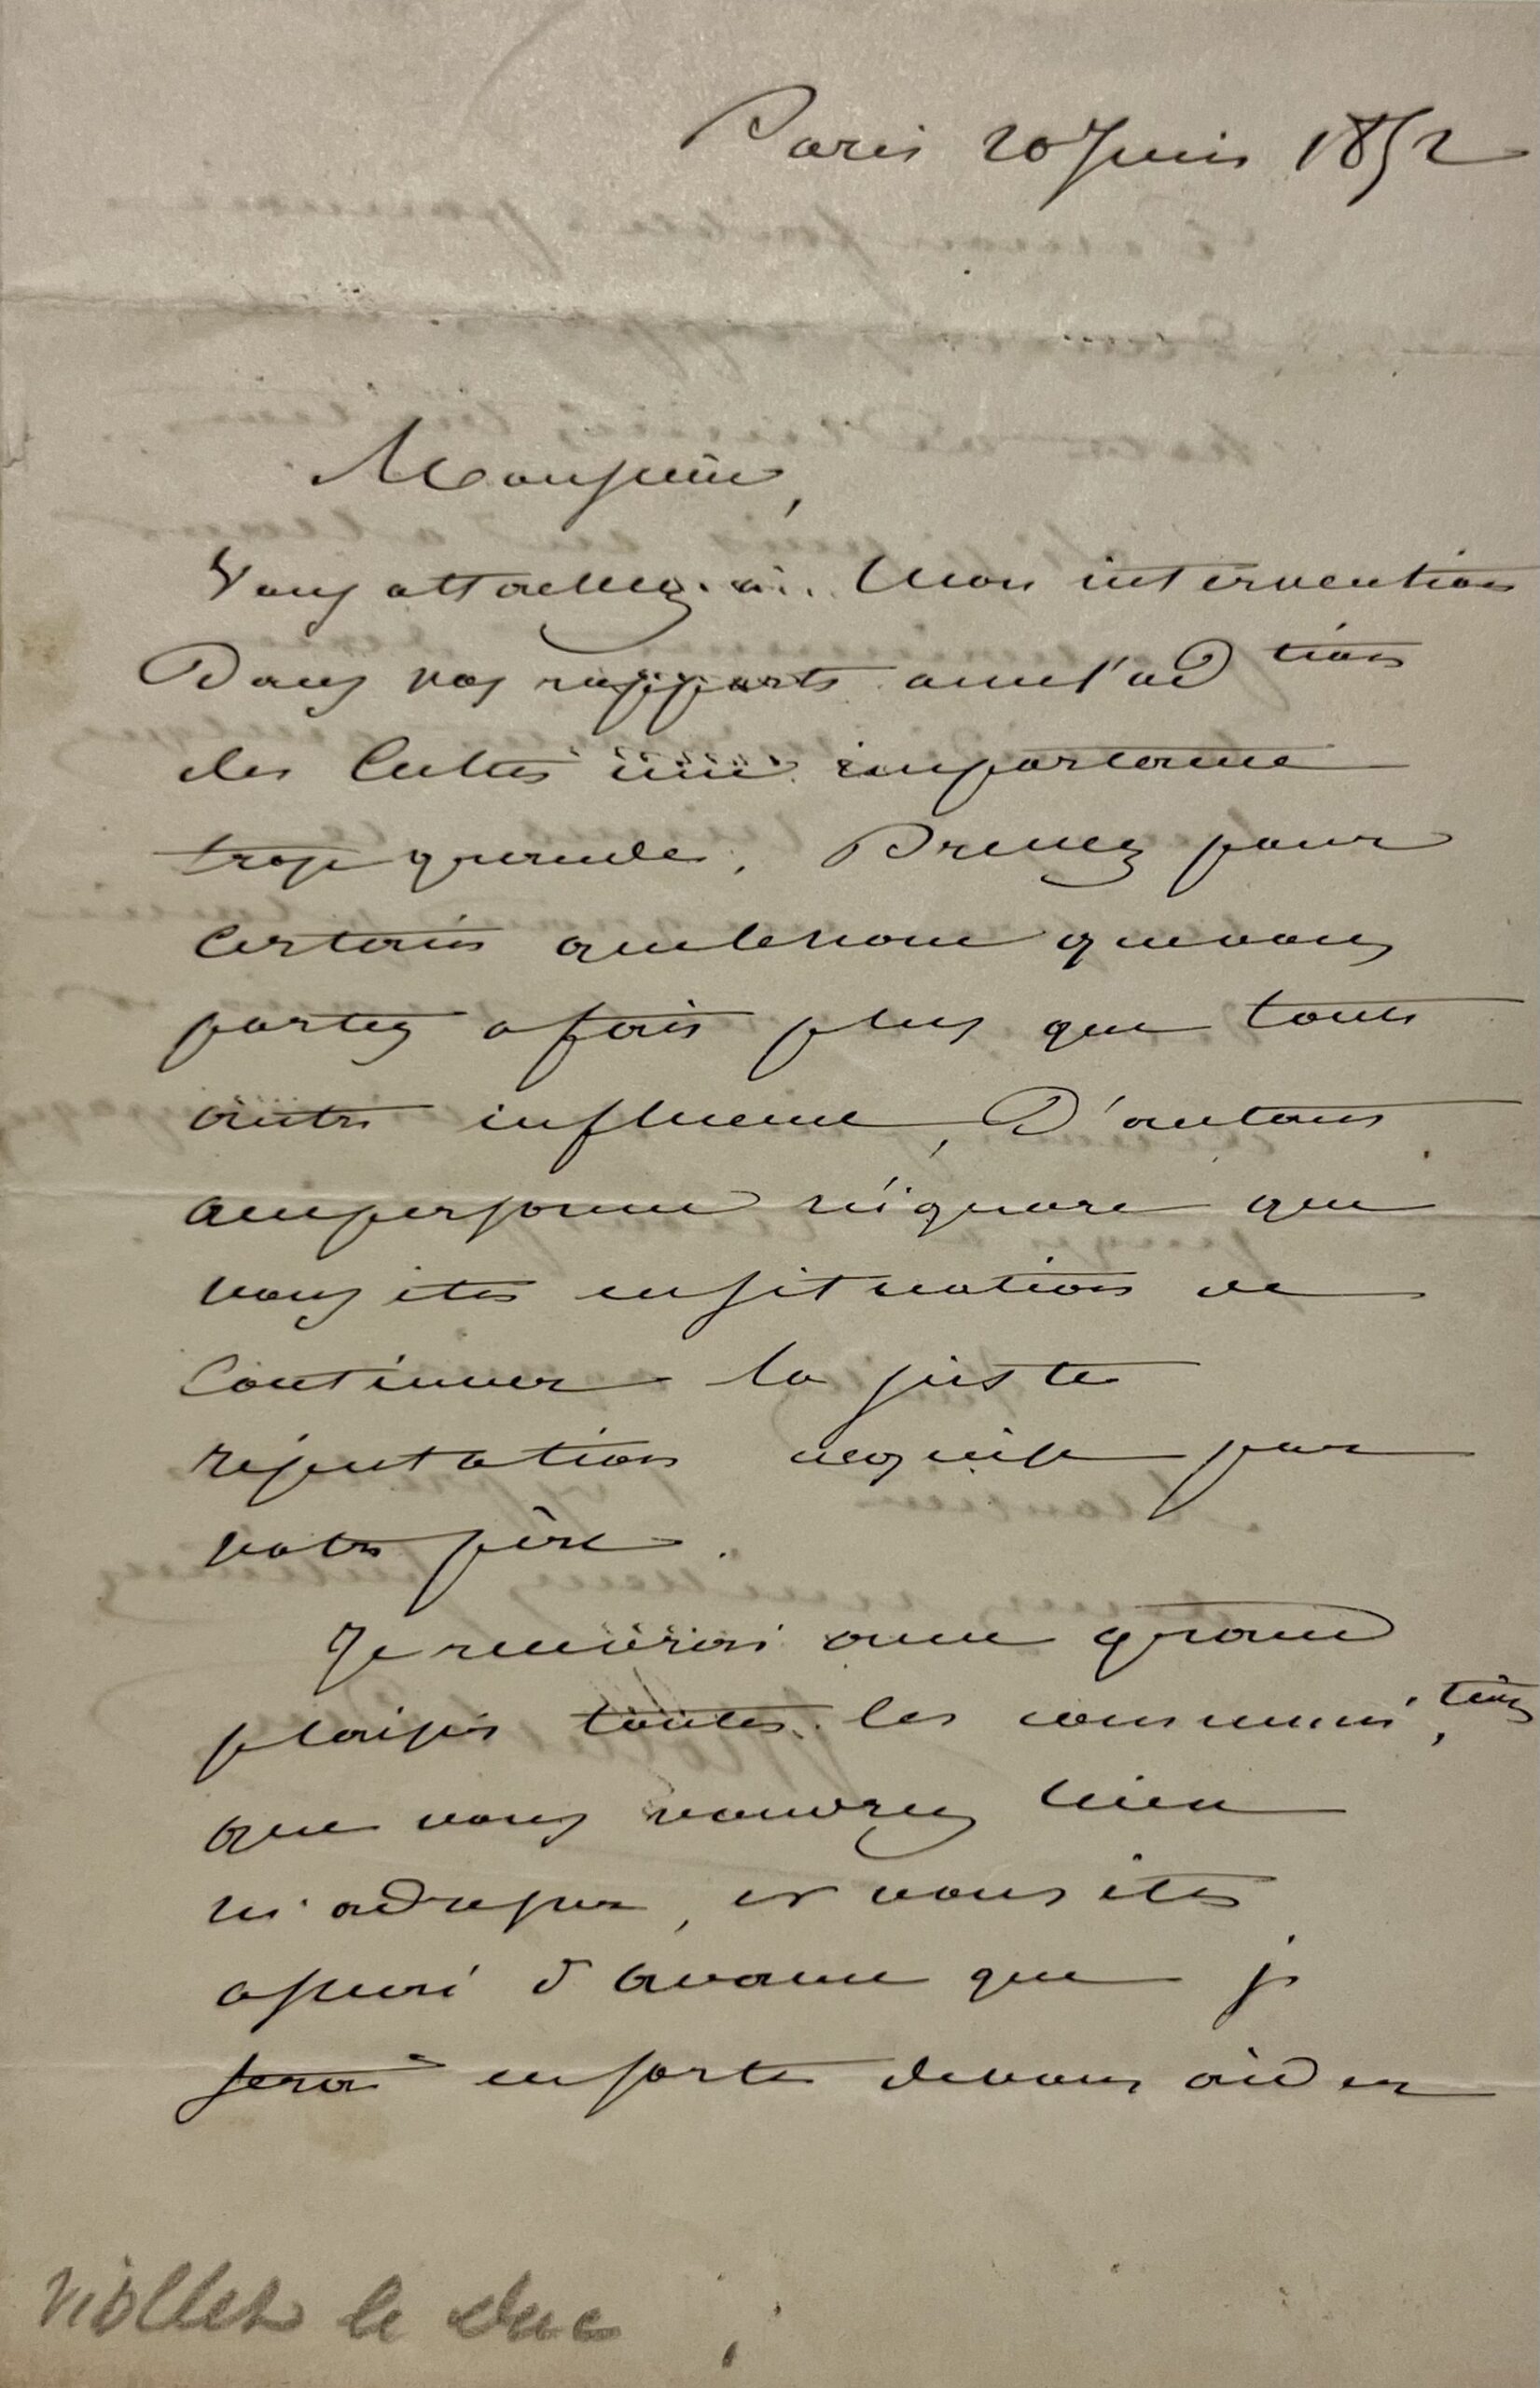 Paris 20 Juin 1852
Monsieur,
Vous attachez à mon intervention
Dans vos rapports avec l'adtion
des Cultes une importance
trop grande. Prenez pour
certain que le nom que vous
portez a fait plus que toute
autre influence, D'autant
que personne n'ignore que
vous êtes en situation de
Continuer la juste
réputation acquise par
votre père.
Je recevrai avec grand
plaisir toutes les communi.tions
que vous voudrez bien
m'adresser, et vous êtes
assuré d'avance que je
ferai en sorte de vous aider
Viollet le Duc